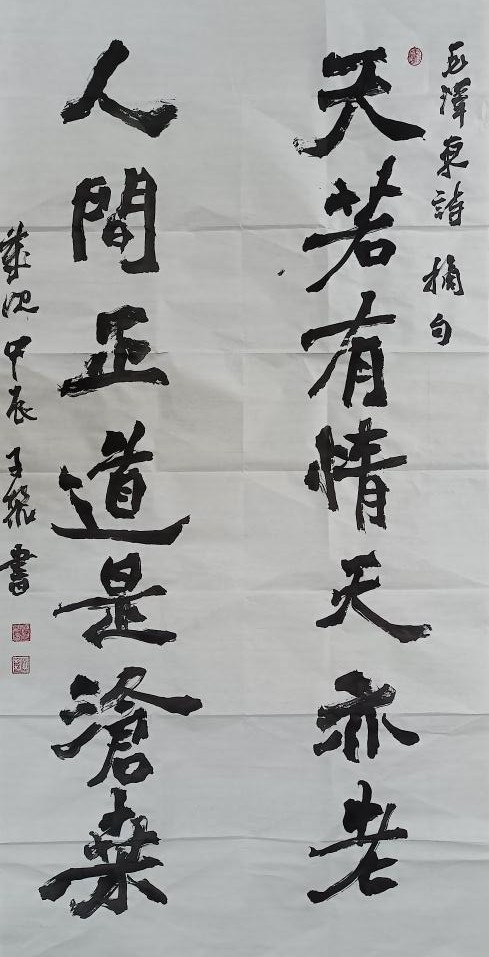 毛澤東詩摘句
天若有情天亦老
人間正道是滄桑
歲次甲辰子龍書